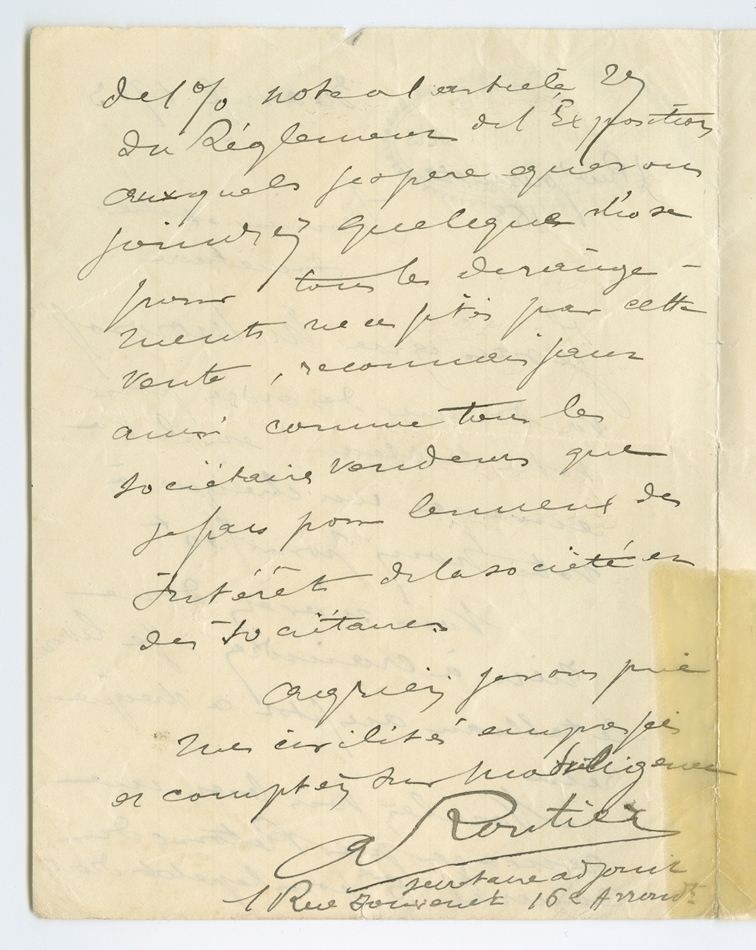 de 1% note a l article 29
Du Réglement de l'Exposition
auxquels j espere que vous
joindrez quelque chose
pour tous les derange-
ments par cette
vente, reconnaissant
ainsi comme tous les
sociétaires vendeurs que
je fais pour le mieux des
Intérêts de la société et
des Sociétaires
Agréez je vous prie
mes civilités empressées
et comptez sur ma diligence
A Routier
secretaire adjoint
1 Rue Jouvenet 16e Arrondt